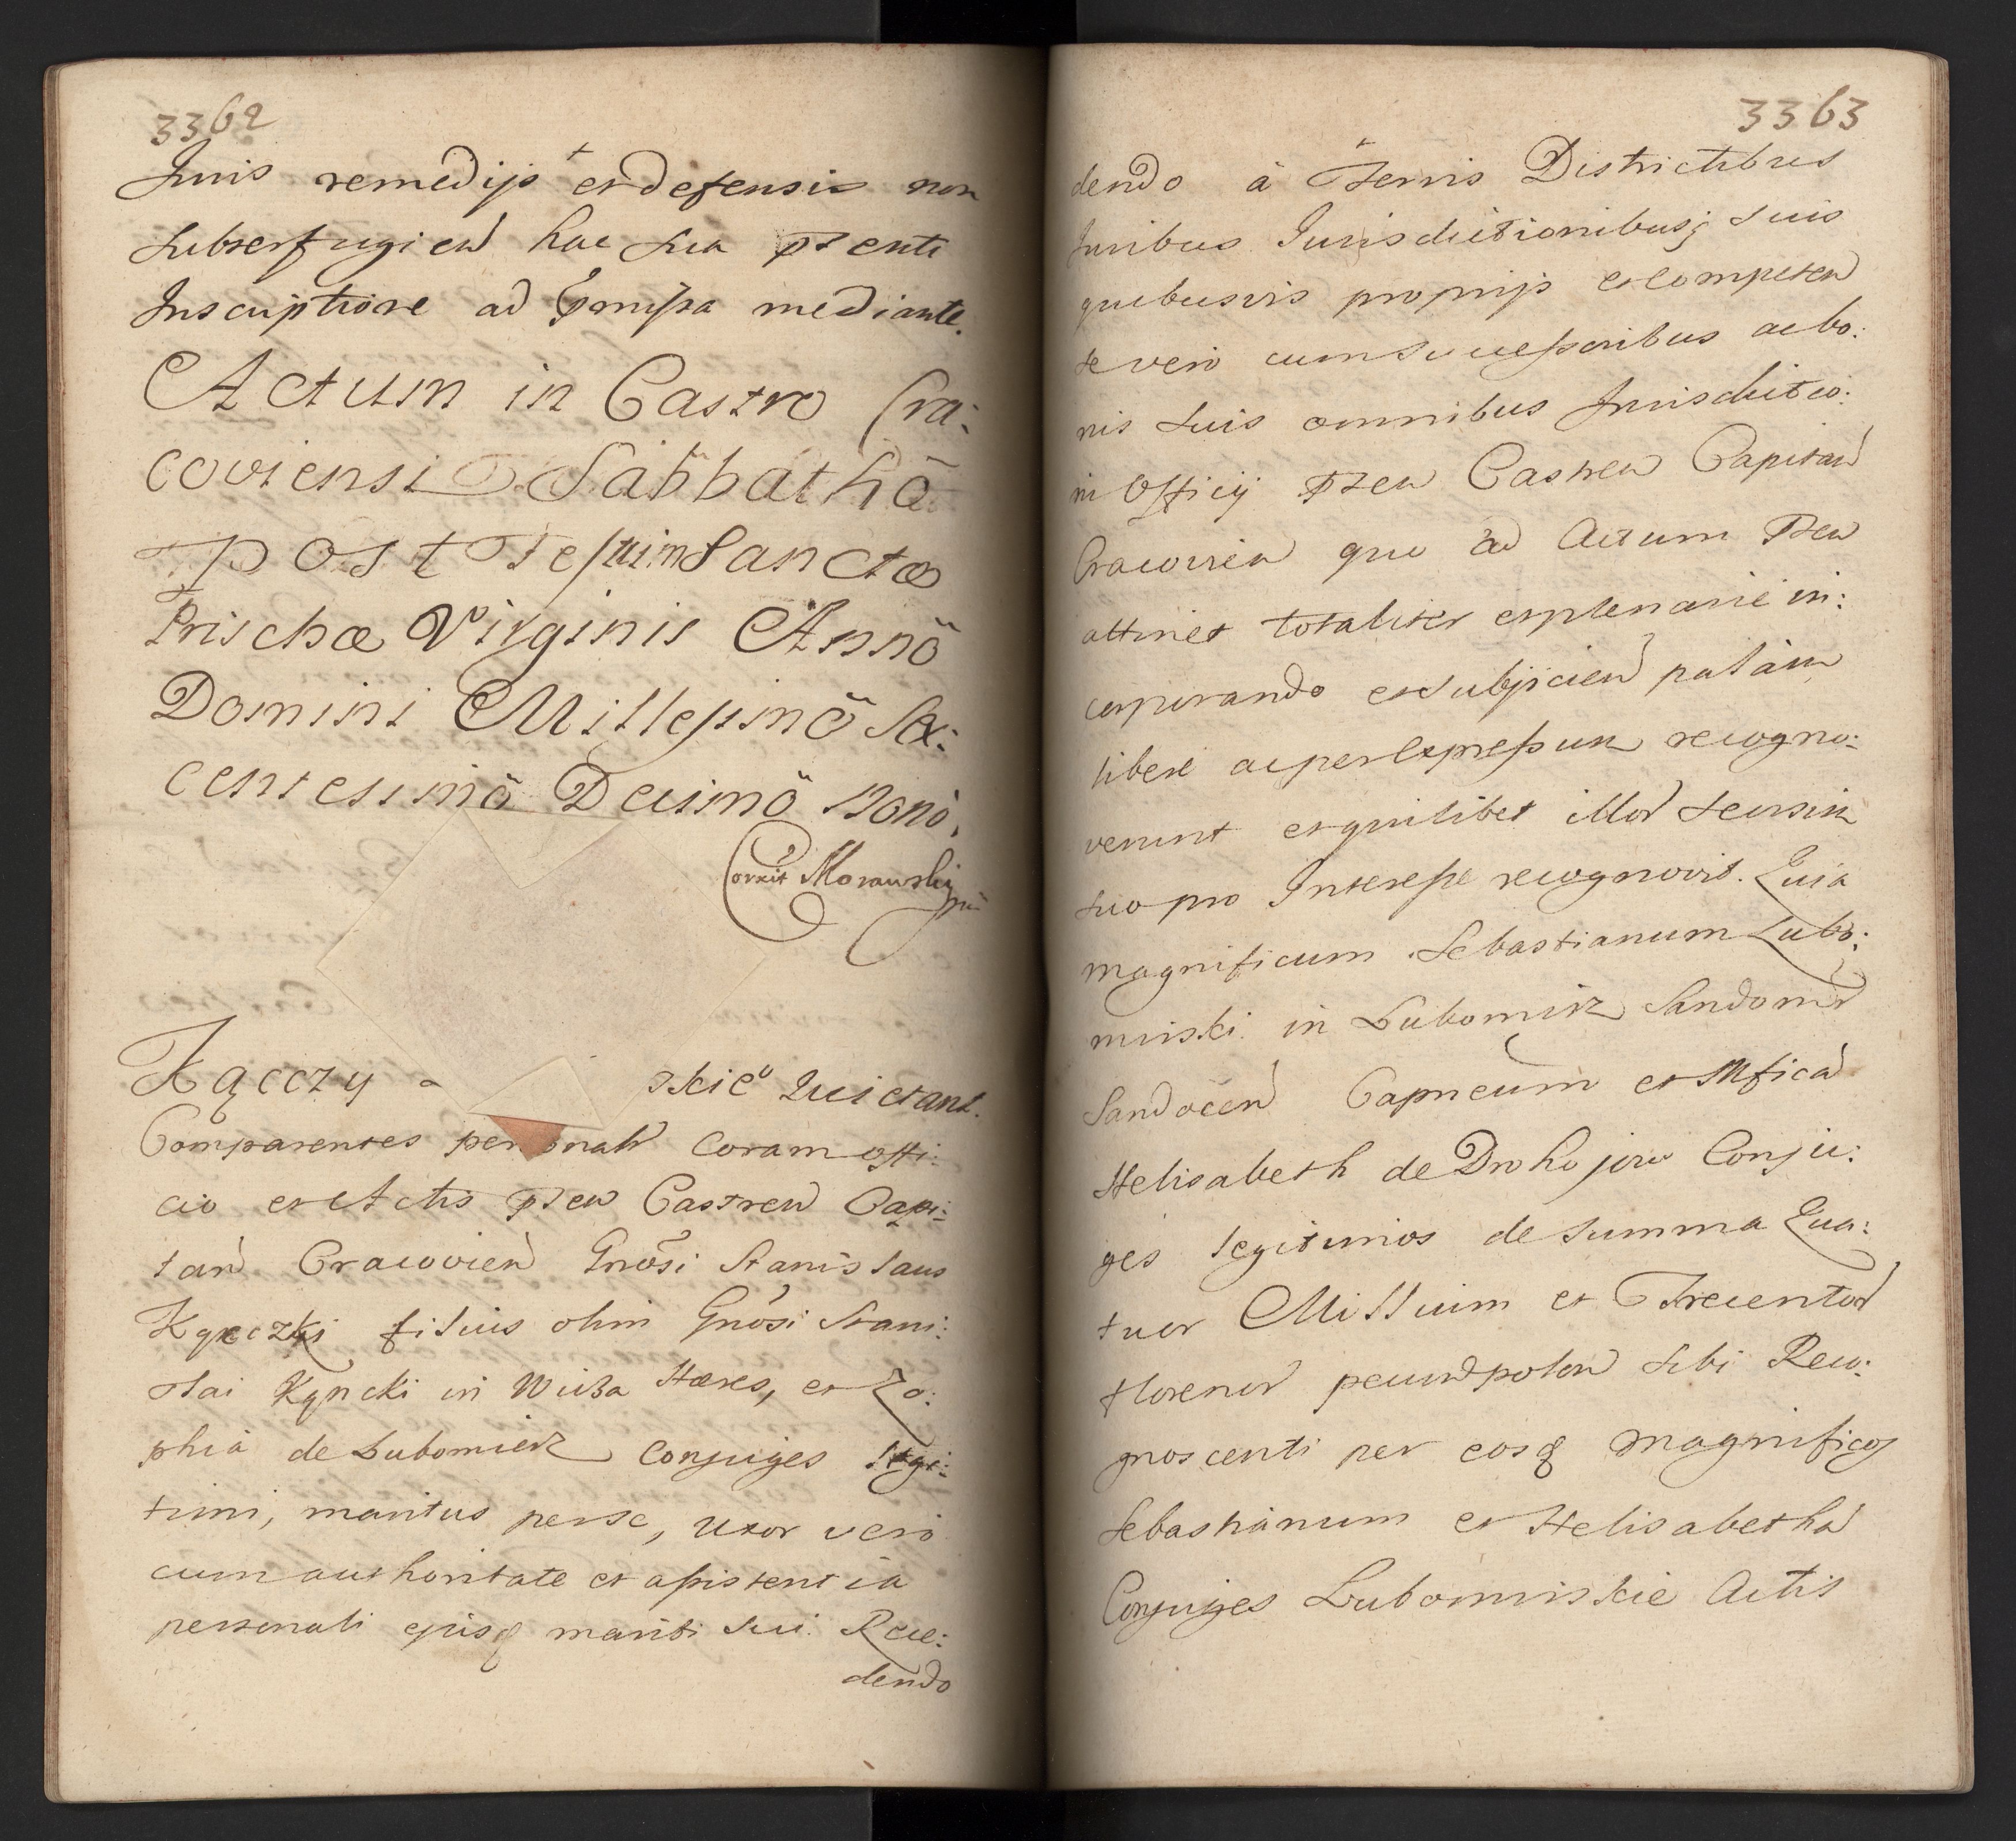 3362
Juris remedijs et defensis non
subterfugien hac sua pzenti
Inscriptione ad pmissa mediante.
Actum in Castro Cra:
coviensi Sabbathö
Post Festum Sanctæ
Prischæ Virginis Annö
Domini Millesimö Sex:
centesimö Decimö nonö.
Correxit Morawski mp
Kącczy - skie Quietant.
Comparentes personalr coram offi:
cio et Actis pzen Castren Capi:
tan Cracovien Gnõsi Stanislaus
Kączki filius olim Gnõsi Stani:
slai Kącki in Wiißa Hæres, et Zo:
phia de Lubomierz Conjuges legi:
timi, maritus per se, uxor vero
cum authoritate et assistentia
personali ejusq mariti sui. Rece:
dendo
3363
dendo à Terris Districtibus
Juribus Jurisdictionibusq suis
quibusvis proprijs et competen
se vero cum successoribus ac bo:
nis suis omnibus Jurisdictio:
ni Officij Pzen Castren Capitan
Cracovien quo ad Actum Pzen
attinet totaliter et plenarie in:
corporando et subjicien palàm
libere ac per expressum recogno:
verunt et quilibet illor seorsim
suo pro Interesse recognovit. Quia
magnificum Sebastianum Lubo:
mirski in Lubomirz Sandomir
Sandecen Capneum et Mficã
Helisabeth de Drohojow Conju:
ges legitimos de summa Qua:
tuor Millium et Trecentor
florenor pecun polon sibi Reco:
gnoscenti per eosq Magnificos
Sebastianum et Helisabetha
Conjuges Lubomirskie Actis